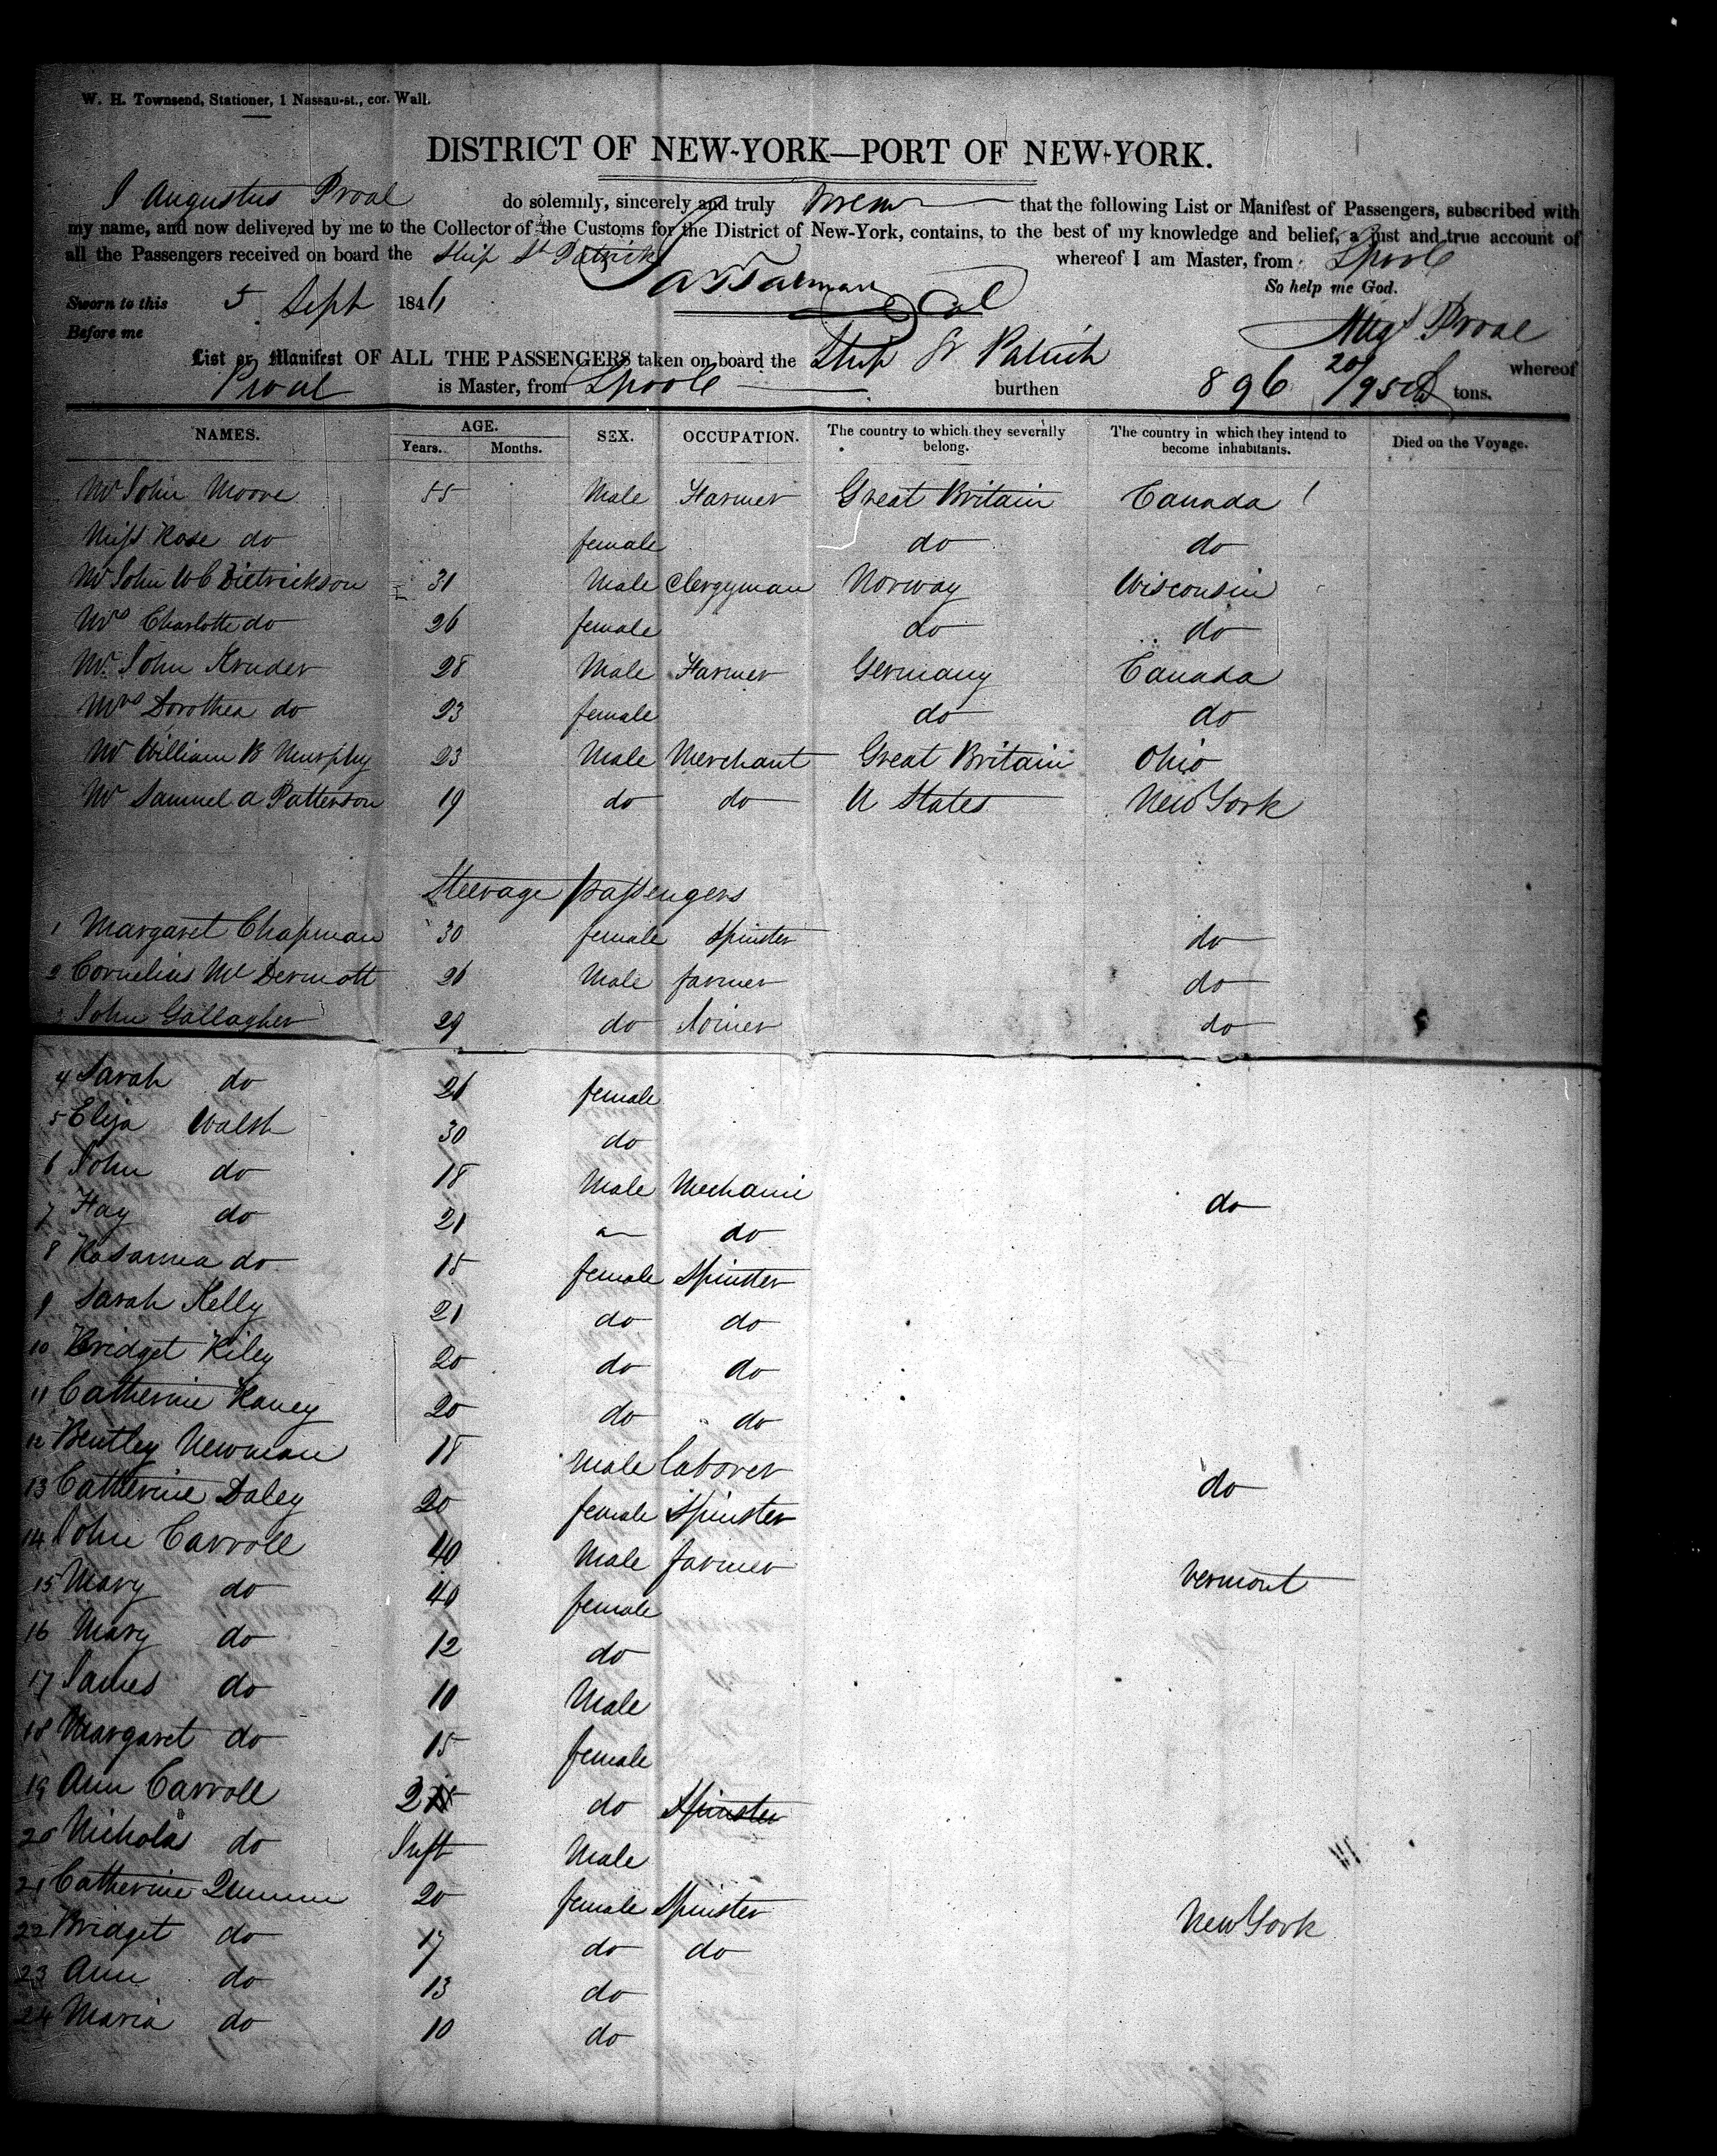 W. H. Townsend, Stationer, 1 Nassau-st., cor. Wall.
DISTRICT OF NEW-YORK—PORT OF NEW-YORK.
I Augustus Proal do solemnly, sincerely and truly swear that the following List or Manifest of Passengers, subscribed with
my name, and now delivered by me to the Collector of the Customs for the District of New-York, contains, to the best of my knowledge and belief, a just and true account of
all the Passengers received on board the Ship St Patrick whereof I am Master, from Lpool
So help me God.
Sworn to this 5 Sept 1846
Before me
Augs Proal
List or Manifest OF ALL THE PASSENGERS taken on board the Ship St Patrick whereof
Proal is Master, from Lpool burthen 896 20/95 tons.
NAMES. AGE. SEX. OCCUPATION. The country to which they severally belong. The country in which they intend to become inhabitants. Died on the Voyage.
Years. Months.
Mr John Moore 55 Male Farmer Great Britain Canada
Miss Rose do female do do
Mr John W C Dietrickson 31 Male Clergyman Norway Wisconsin
Mrs Charlotte do 26 female do do
Mr John Kruder 28 Male Farmer Germany Canada
Mrs Dorothea do 23 female do do
Mr William B Murphy 23 Male Merchant Great Britain Ohio
Mr Samuel A Patterson 19 do do U States New York
Steerage passengers
1 Margaret Chapman 30 female Spinster do
2 Cornelius Mc Dermott 26 Male farmer do
3 John Gallagher 29 do Joiner do
4 Sarah do 26 female
5 Eliza Walsh 30 do
6 John do 18 Male Mechanic do
7 Hay do 21 do
8 Rosanna do 15 female Spinster
9 Sarah Kelly 21 do do
10 Bridget Riley 20 do do
11 Catherine Raney 20 do do
12 Bentley Newman 18 Male laborer do
13 Catherine Daley 20 female Spinster
14 John Carroll 40 Male farmer Vermont
15 Mary do 40 female
16 Mary do 12 do
17 James do 10 Male
18 Margaret do 15 female
19 Ann Carroll do Spinster
20 Nicholas do Inft Male
21 Catherine 20 female Spinster New York
22 Bridget do 17 do do
23 Ann do 13 do
24 Maria do 10 do